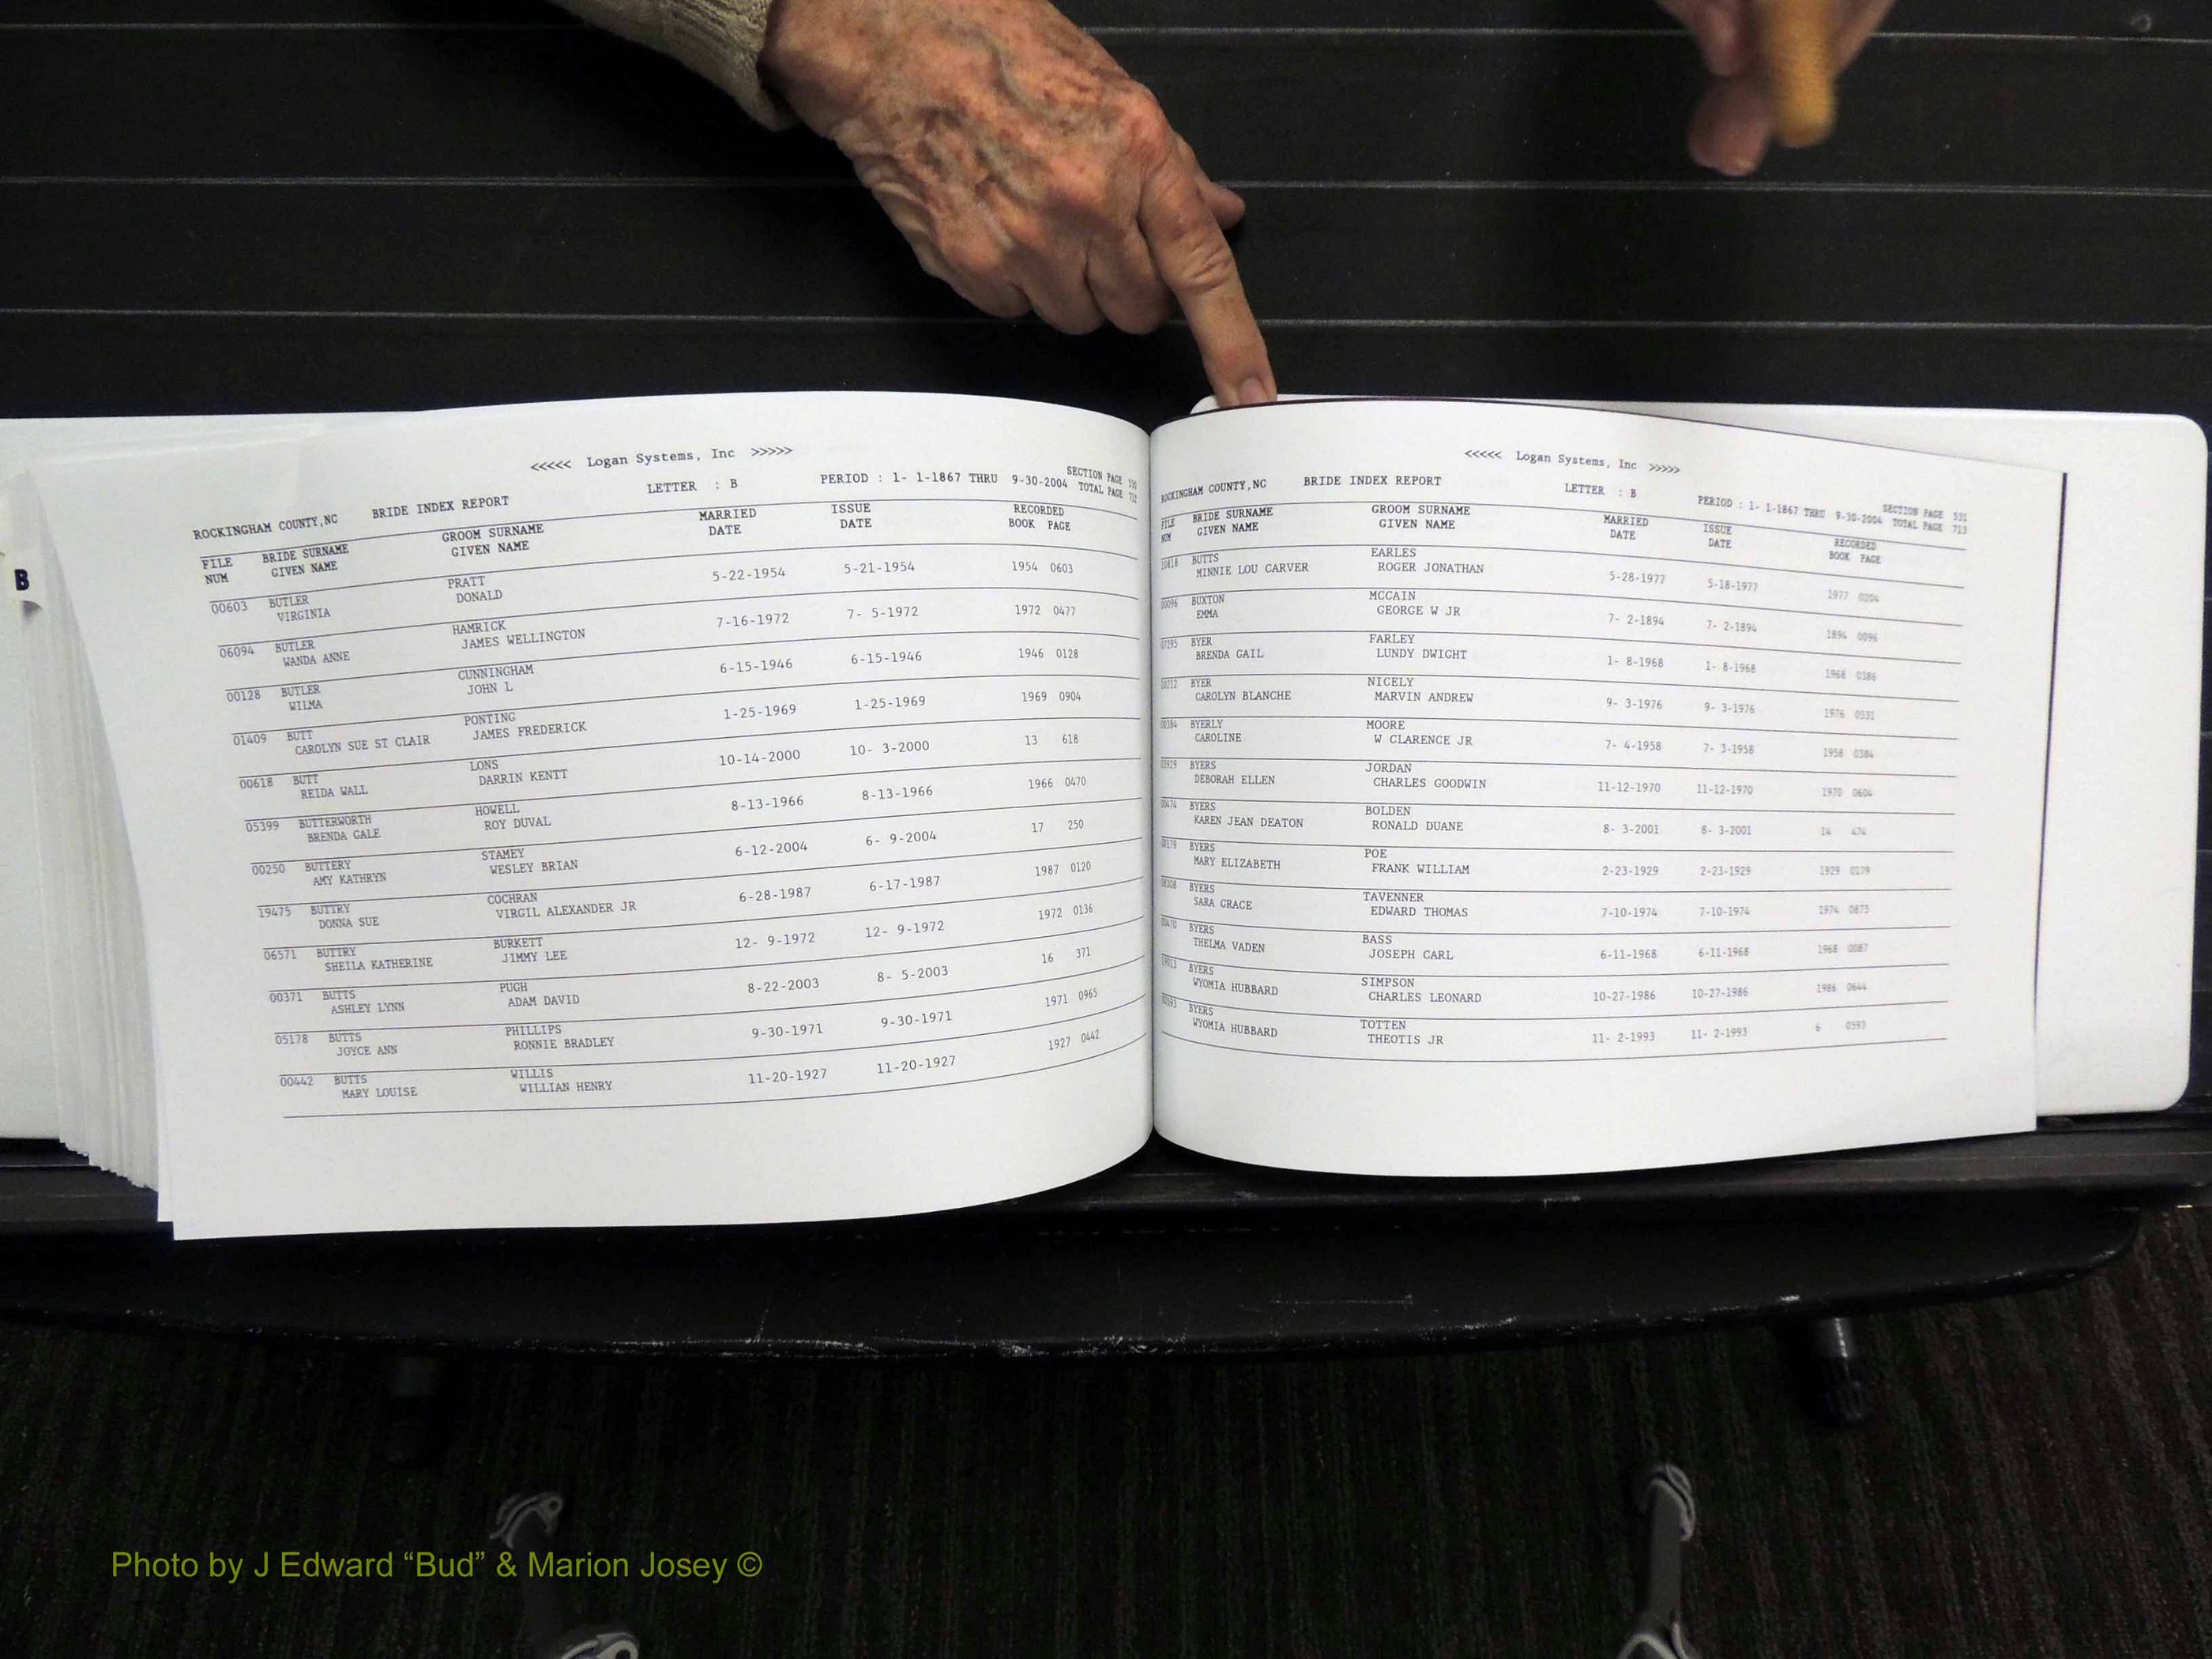 B
<<<<< Logan Systems, Inc >>>>>
ROCKINGHAM COUNTY,NC BRIDE INDEX REPORT LETTER : B PERIOD : 1- 1-1867 THRU 9-30-2004 SECTION PAGE 530
TOTAL PAGE 712
FILE BRIDE SURNAME GROOM SURNAME MARRIED ISSUE RECORDED
NUM GIVEN NAME GIVEN NAME DATE DATE BOOK PAGE
00603 BUTLER PRATT 5-22-1954 5-21-1954 1954 0603
VIRGINIA DONALD
06094 BUTLER HAMRICK 7-16-1972 7- 5-1972 1972 0477
WANDA ANNE JAMES WELLINGTON
00128 BUTLER CUNNINGHAM 6-15-1946 6-15-1946 1946 0128
WILMA JOHN L
01409 BUTT PONTING 1-25-1969 1-25-1969 1969 0904
CAROLYN SUE ST CLAIR JAMES FREDERICK
00618 BUTT LONS 10-14-2000 10- 3-2000 13 618
REIDA WALL DARRIN KENTT
05399 BUTTERWORTH HOWELL 8-13-1966 8-13-1966 1966 0470
BRENDA GALE ROY DUVAL
00250 BUTTERY STAMEY 6-12-2004 6- 9-2004 17 250
AMY KATHRYN WESLEY BRIAN
19475 BUTTRY COCHRAN 6-28-1987 6-17-1987 1987 0120
DONNA SUE VIRGIL ALEXANDER JR
06571 BUTTRY BURKETT 12- 9-1972 12- 9-1972 1972 0136
SHEILA KATHERINE JIMMY LEE
00371 BUTTS PUGH 8-22-2003 8- 5-2003 16 371
ASHLEY LYNN ADAM DAVID
05178 BUTTS PHILLIPS 9-30-1971 9-30-1971 1971 0965
JOYCE ANN RONNIE BRADLEY
00442 BUTTS WILLIS 11-20-1927 11-20-1927 1927 0442
MARY LOUISE WILLIAN HENRY
<<<<< Logan Systems, Inc >>>>>
ROCKINGHAM COUNTY,NC BRIDE INDEX REPORT LETTER : B PERIOD : 1- 1-1867 THRU 9-30-2004 SECTION PAGE 531
TOTAL PAGE 713
FILE BRIDE SURNAME GROOM SURNAME MARRIED ISSUE RECORDED
NUM GIVEN NAME GIVEN NAME DATE DATE BOOK PAGE
10818 BUTTS EARLES 5-28-1977 5-18-1977 1977 0204
MINNIE LOU CARVER ROGER JONATHAN
00096 BUXTON MCCAIN 7- 2-1894 7- 2-1894 1894 0096
EMMA GEORGE W JR
BYER FARLEY 1- 8-1968 1- 8-1968 1968 0386
BRENDA GAIL LUNDY DWIGHT
BYER NICELY 9- 3-1976 9- 3-1976 1976 0331
CAROLYN BLANCHE MARVIN ANDREW
00384 BYERLY MOORE 7- 4-1958 7- 3-1958 1958 0384
CAROLINE W CLARENCE JR
BYERS JORDAN 11-12-1970 11-12-1970 1970 0604
DEBORAH ELLEN CHARLES GOODWIN
00474 BYERS BOLDEN 8- 3-2001 8- 3-2001 14 474
KAREN JEAN DEATON RONALD DUANE
00179 BYERS POE 2-23-1929 2-23-1929 1929 0179
MARY ELIZABETH FRANK WILLIAM
BYERS TAVENNER 7-10-1974 7-10-1974 1974 0875
SARA GRACE EDWARD THOMAS
BYERS BASS 6-11-1968 6-11-1968 1968 0087
THELMA VADEN JOSEPH CARL
BYERS SIMPSON 10-27-1986 10-27-1986 1986 0644
WYOMIA HUBBARD CHARLES LEONARD
00593 BYERS TOTTEN 11- 2-1993 11- 2-1993 6 0593
WYOMIA HUBBARD THEOTIS JR
Photo by J Edward “Bud” & Marion Josey ©